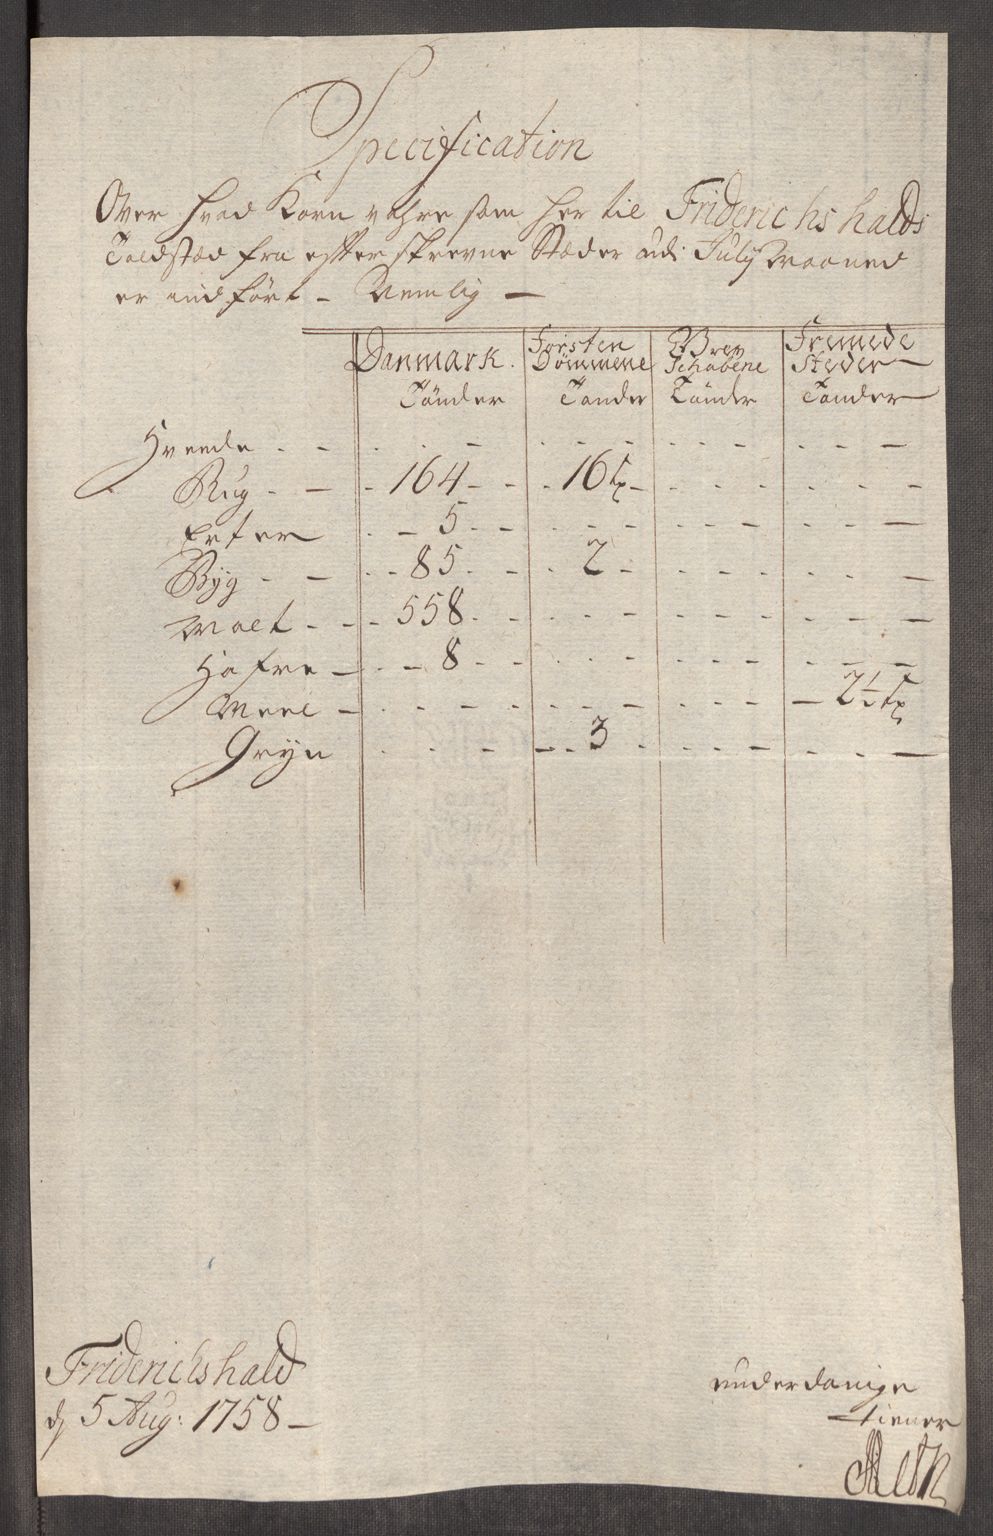 Specification
Over hvad Korn vahre som her til Friderichshalds
Toldstæd fra effterskrevne Stæder udi July Maaned
er indført - Nemlig -
Danmark. Førsten Dømmene Grev Schabene Fremede Steder
Tönder Tönder Tönder Tönder
Hveede
Rug 164 16
Erter 5
Byg 85 2
Malt 558
Hafre 8
Meel 2½
Gryn 3
Friderichshald
d 5 Aug: 1758 -
underdanige
tiener